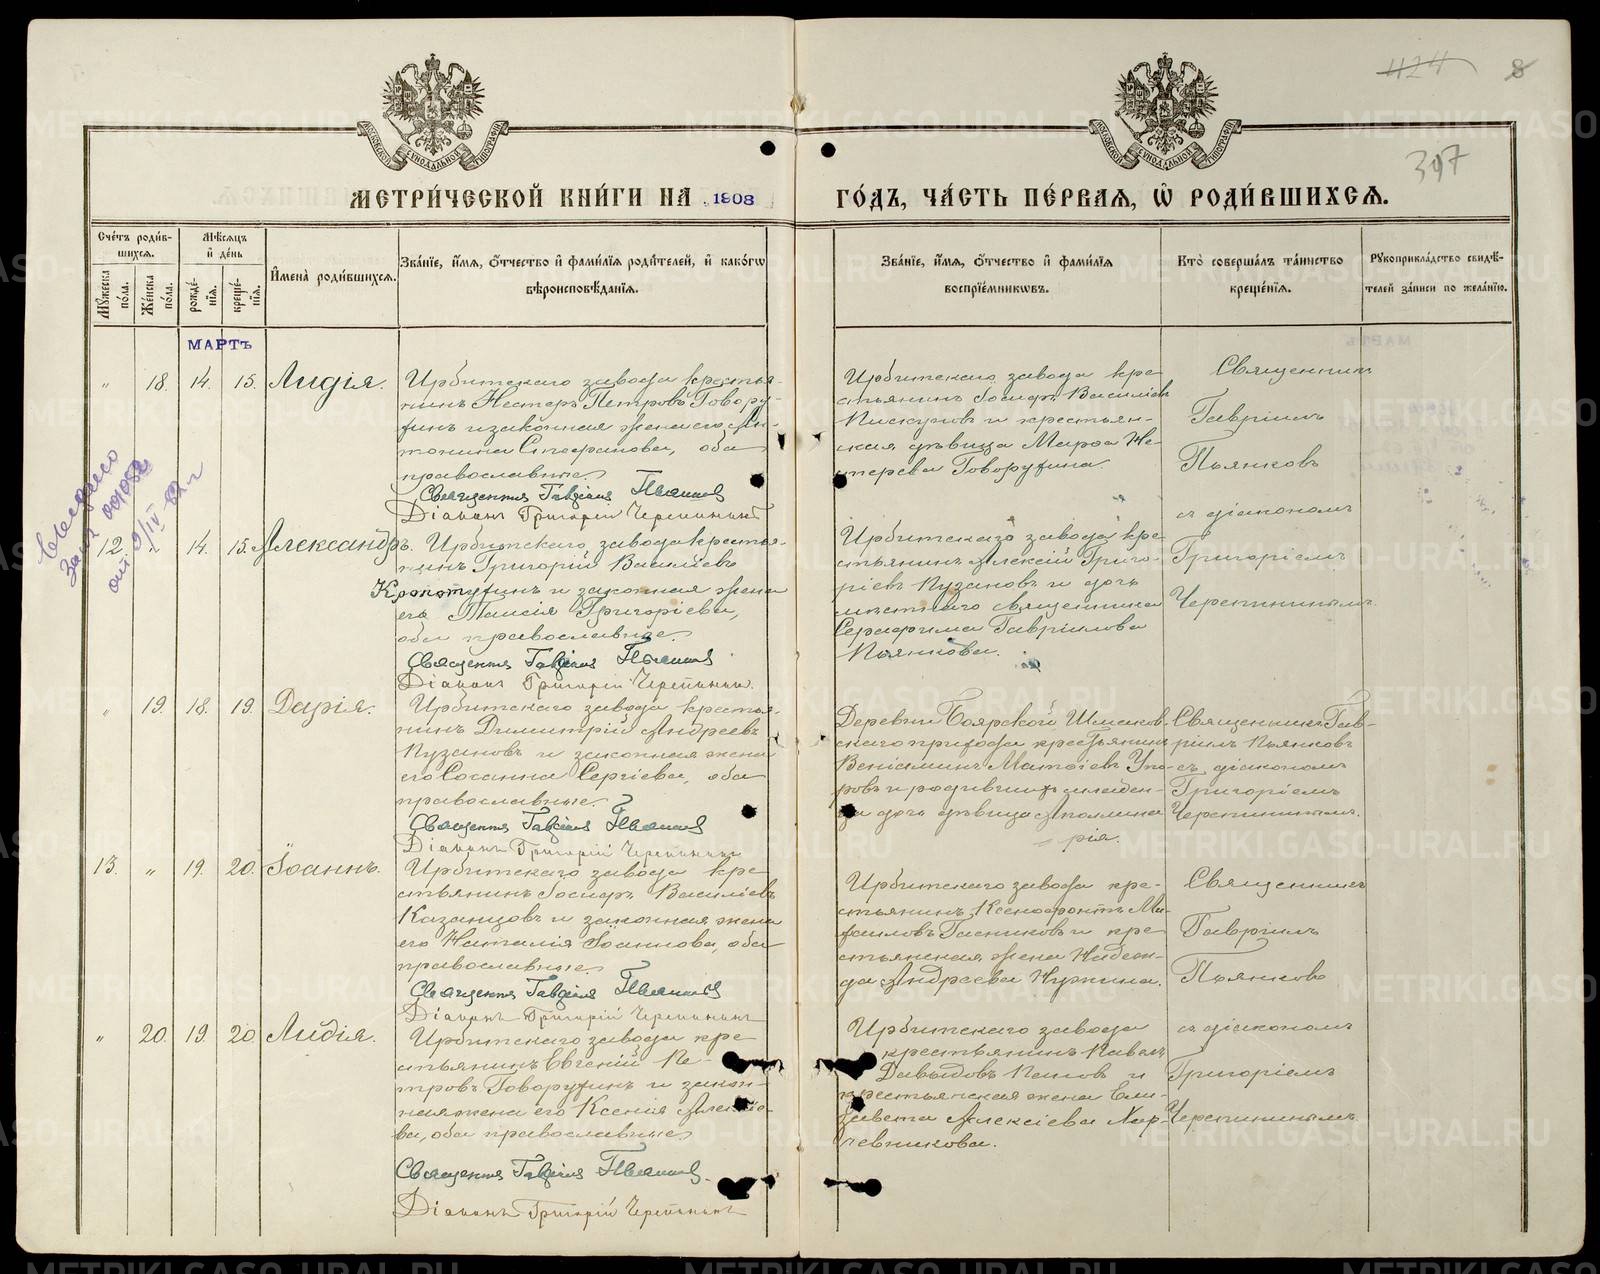 424 8
397
МОСКОВСКОЙ СѴНОДАЛЬНОЙ ТИПОГРАФІИ
МОСКОВСКОЙ СѴНОДАЛЬНОЙ ТИПОГРАФІИ
МЕТРИ́ЧЕСКОЙ КНИ́ГИ НА 1903 ГО́ДЪ, ЧА́СТЬ ПЕ́РВАЯ, Ѡ҆ РОДИ́ВШИХСЯ.
Сче́тъ роди́в-
шихся.
Мꙋ́жеска по́ла.
Же́нска по́ла.
Мѣ́сяцъ и҆ де́нь
рожде́-нїя.
креще́-нїя.
И҆мена̀ роди́вшихся.
Зва́нїе, и҆́мя, ѻ҆́тчество и҆ фами́лїя роди́телей, и҆ како́гѡ
вѣроисповѣ́данїя.
Зва́нїе, и҆́мя, ѻ҆́тчество и҆ фами́лїя
воспрїе́мникѡвъ.
Кто̀ соверша́лъ та́инство
креще́нїя.
Рꙋкоприкла́дство свидѣ́-
телей за́писи по жела́нїю.
МАРТЪ
" 18. 14. 15. Лидія.
Ирбитскаго завода крестья-
нинъ Несторъ Петровъ Говору-
хинъ и законная жена его Ан-
тонина Стефанова, оба
православные.
Священникъ Гавріилъ Пьянковъ
Діаконъ Григорій Черепанинъ
Ирбитскаго завода кре-
стьянинъ Іосифъ Васильевъ
Пискуновъ и крестьян-
ская дѣвица Марѳа Не-
стерова Говорухина.
Священникъ
Гавріилъ
Пьянковъ
съ діакономъ
Григоріемъ
Черепанинымъ.
12. " 14. 15. Александръ.
Ирбитскаго завода крестья-
нинъ Григорій Васильевъ
Кропотухинъ и законная жена
его Таисія Григоріева,
оба православные.
Священникъ Гавріилъ Пьянковъ
Діаконъ Григорій Черепанинъ.
Ирбитскаго завода кре-
стьянинъ Алексій Григо-
ріевъ Пузановъ и дочь
мѣстнаго священника
Серафима Гавріилова
Пьянкова.
" 19. 18. 19. Дарія.
Ирбитскаго завода крестья-
нинъ Димитрій Андреевъ
Пузановъ и законная жена
его Сосанна Сергіева, оба
православные.
Священникъ Гавріилъ Пьянковъ
Діаконъ Григорій Черепанинъ
Деревни Боярской Шмаков-
скаго прихода крестьянинъ
Веніаминъ Матѳіевъ Упо-
ровъ и родившихъ младен-
ца дочь дѣвица Аполлина-
рія.
Священникъ Гав-
ріилъ Пьянковъ
съ діакономъ
Григоріемъ
Черепанинымъ.
13. " 19. 20. Іоаннъ.
Ирбитскаго завода кре-
стьянинъ Іосифъ Васильевъ
Казанцовъ и законная жена
его Наталія Іоаннова, оба
православные.
Священникъ Гавріилъ Пьянковъ
Діаконъ Григорій Черепанинъ
Ирбитскаго завода кре-
стьянинъ Ксенофонтъ Ми-
хаиловъ Пасниковъ и кре-
стьянская жена Надеж-
да Андреева Нужина.
Священникъ
Гавріилъ
Пьянковъ
съ діакономъ
Григоріемъ
Черепанинымъ.
" 20. 19. 20. Лидія.
Ирбитскаго завода кре-
стьянинъ Евгеній Пе-
тровъ Говорухинъ и закон-
ная жена его Ксенія Алексіе-
ва, оба православные.
Священникъ Гавріилъ Пьянковъ.
Діаконъ Григорій Черепанинъ
Ирбитскаго завода
крестьянинъ Павелъ
Давыдовъ Поповъ и
крестьянская жена Ели-
завета Алексіева Хар-
левникова.